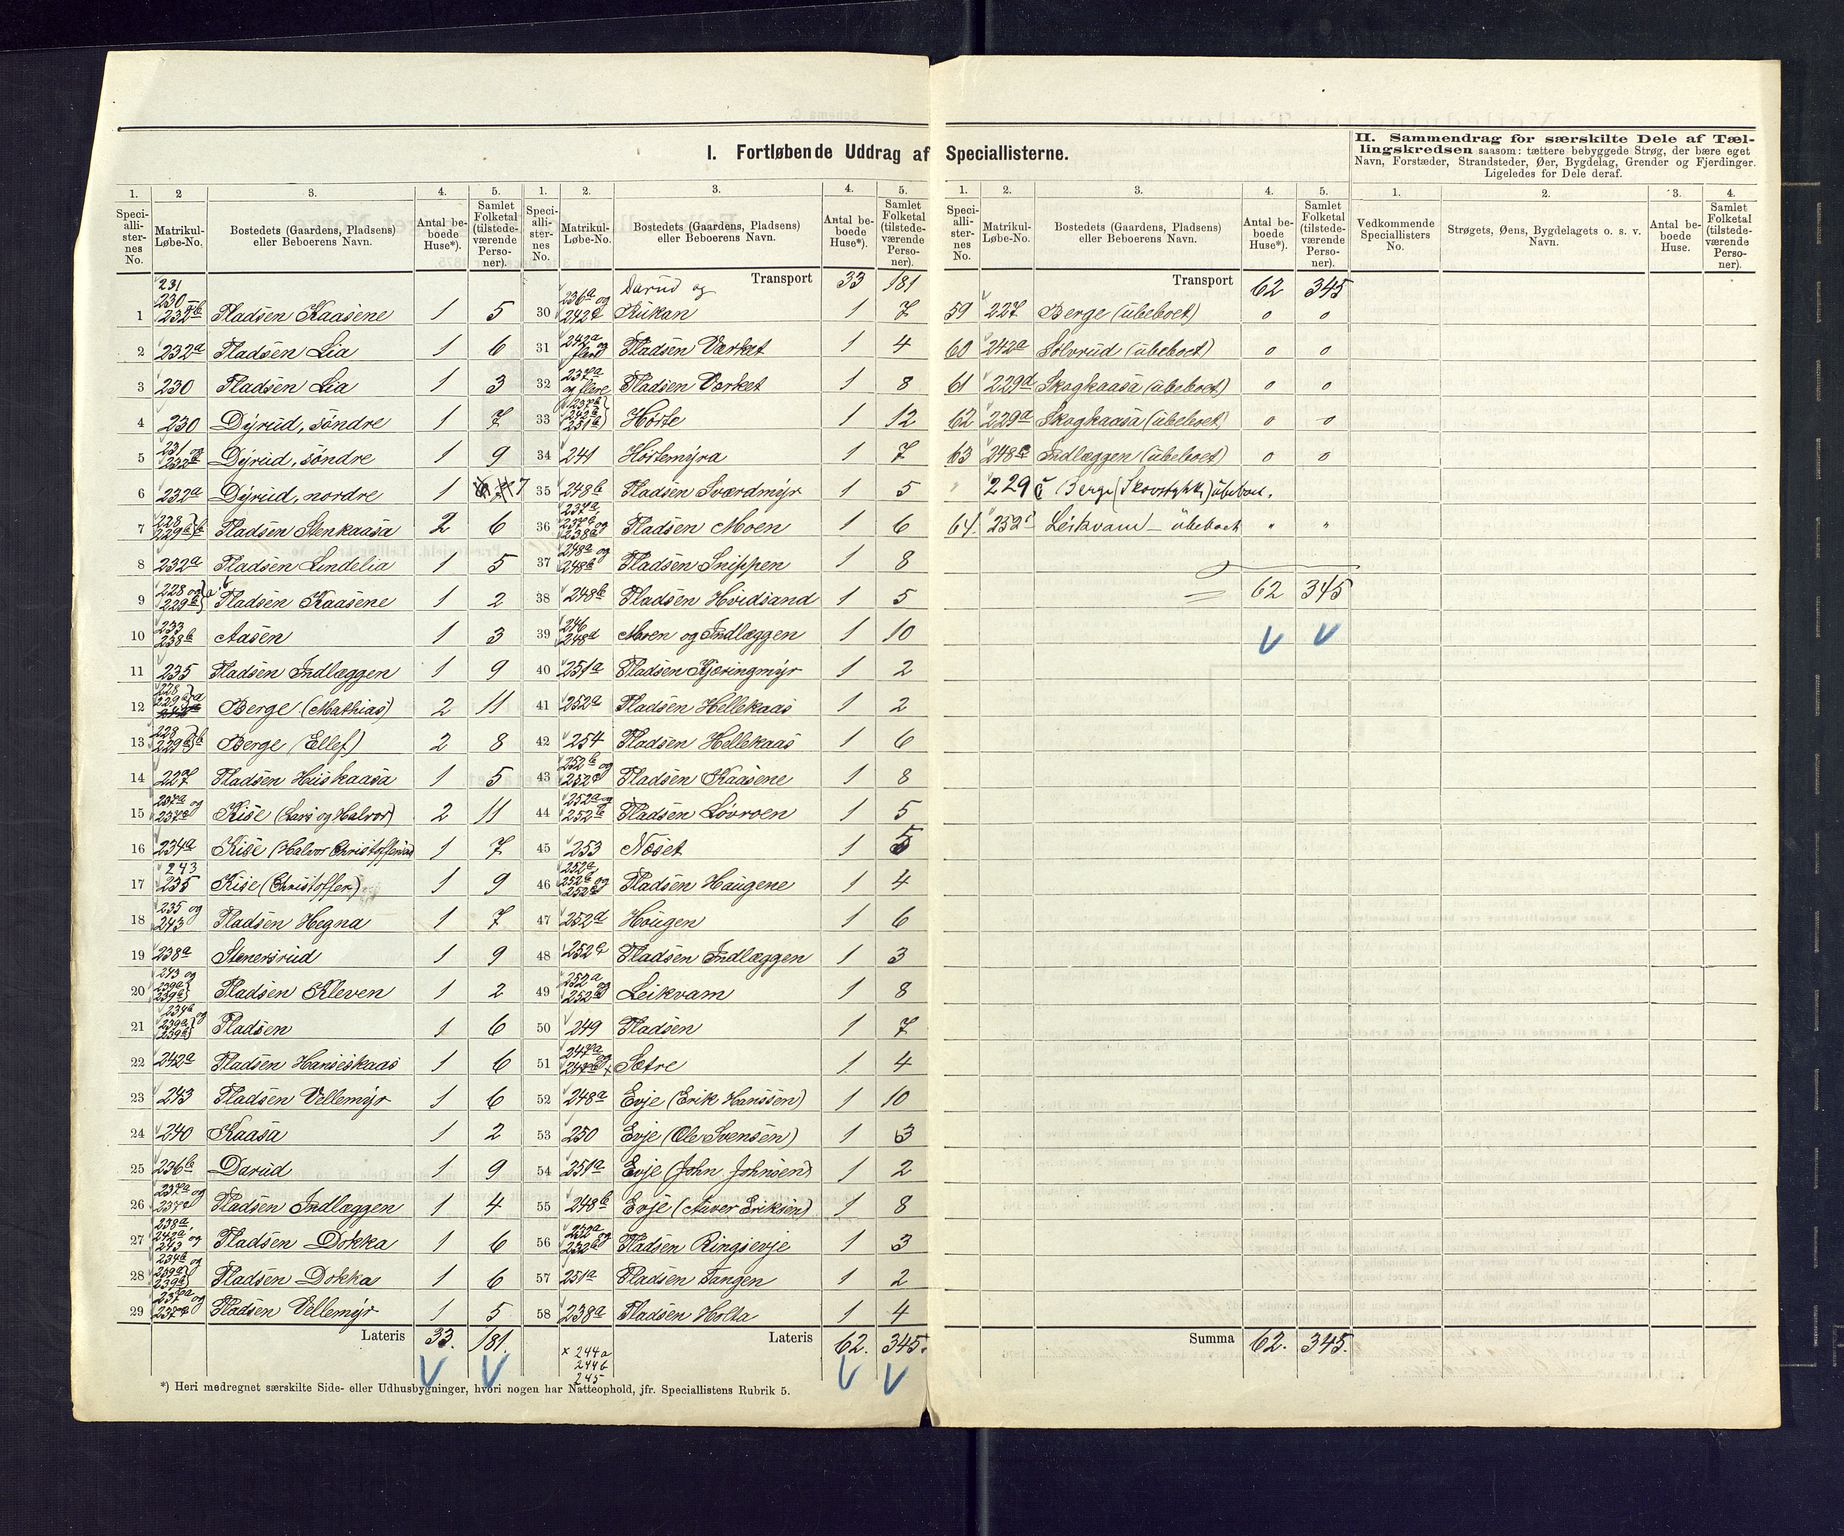 I. Fortløbende Uddrag af Speciallisterne.
II. Sammendrag for særskilte Dele af Tællingskredsen saasom: tættere bebyggede Strøg, der bære eget
Navn, Forstæder, Strandsteder, Øer, Bygdelag, Grender og Fjerdinger.
Ligeledes for Dele deraf.
1. 2 3. 4. 5.
Speciallisternes No. Matrikul-Løbe-No. Bostedets (Gaardens, Pladsens) eller Beboerens Navn. Antal beboede Huse*). Samlet Folketal (tilstedeværende Personer).
231
230
1 232b Pladsen Kaasene 1 5
2 232a Pladsen Lia 1 6
3 230 Pladsen Lia 1 3
4 230 Dyrud, søndre 1 7
5 231 og 232b Dyrud, søndre 1 9
6 232a Dyrud, nordre 1 7
7 228 229b Pladsen Stenkaasa 2 6
8 232a Pladsen Lindelia 1 5
9 228 og 229b Pladsen Kaasene 1 2
10 233 238b Aasen 1 3
11 235 Pladsen Indlæggen 1 9
12 228 229a Berge (Mathias) 2 11
13 228 229b Berge (Ellef) 2 8
14 227 Pladsen Huskaasa 1 5
15 237a og 237c Kise (Lars og Halvor) 2 11
16 234a Kise (Halvor Christoffersen) 1 7
17 243 235 Kise (Christoffer) 1 9
18 235 og 243 Pladsen Hegna 1 7
19 238a Stenersrud 1 9
20 243 og 239a 239b Pladsen Kleven 1 2
21 234b og 239a 239b Pladsen 1 6
22 242a Pladsen Hanseskaas 1 6
23 243 Pladsen Vellemyr 1 6
24 240 Kaasa 1 2
25 236b Darud 1 9
26 237a og 237c Pladsen Indlæggen 1 4
27 238a, 242a og 243 Pladsen Dokka 1 6
28 234b og 239a 239b Pladsen Dokka 1 6
29 237a og 237c Pladsen Vellemyr 1 5
Lateris 33. 181.
1. 2. 3. 4. 5.
Speciallisternes No. Matrikul-Løbe-No. Bostedets (Gaardens, Pladsens) eller Beboerens Navn. Antal beboede Huse*). Samlet Folketal (tilstedeværende Personer).
Transport 33 181
Darud og
30 236a og 242d Rukan 1 7
31 242a og flere Pladsen Værket 1 4
32 237a og flere Pladsen Værket 1 8
33 237b 242b 251b Hørte 1 12
34 241 Hørtemyra 1 7
35 248b Pladsen Sværdmyr 1 5
36 237a 237c og 238a Pladsen Moen 1 6
37 248a og 248b Pladsen Snippen 1 8
38 248b Pladsen Hvidsand 1 5
39 246 248d Moen og Indlæggen 1 10
40 251a Pladsen Kjæringmyr 1 2
41 252a Pladsen Hellekaas 1 2
42 254 Pladsen Hellekaas 1 6
43 252b og 252c Pladsen Kaasene 1 8
44 252a og 252b Pladsen Løvroen 1 5
45 253 Nøset 1 5
46 252a 252b og 252c Pladsen Haugene 1 4
47 252d Hougen 1 6
48 252c Pladsen Indlæggen 1 3
49 252a og 252b Leikvam 1 8
50 249 Pladsen 1 7
51 247a og 247b x Sætre 1 4
52 248a Evje (Erik Hanssen) 1 10
53 250 Evje (Ole Svensen) 1 3
54 251a Evje (John Johnsen) 1 2
55 248b Evje (Aaver Eriksen) 1 8
56 252a og 252b Pladsen Ringsevje 1 3
57 251a Pladsen Tangen 1 2
58 238a Pladsen Holta 1 4
Lateris 62. 345.
x 244a
244b
245
*) Heri medregnet særskilte Side- eller Udhusbygninger, hvori nogen har Natteophold, jfr. Speciallistens Rubrik 5.
1. 2. 3. 4. 5.
Speciallisternes No. Matrikul-Løbe-No. Bostedets (Gaardens, Pladsens) eller Beboerens Navn. Antal beboede Huse*). Samlet Folketal (tilstedeværende Personer).
Transport 62 345
59 227 Berge (ubeboet) 0 0
60 242a Sølvrud (ubeboet) 0 0
61 229d Skogkaasa (ubeboet) 0 0
62 229a Skogkaasa (ubeboet) 0 0
63 248c Indlæggen (ubeboet) 0 0
" 229c Berge (Skovstykke) ubeboet.
64. 252c Leikvam – ubeboet " "
= 62 345
Summa 62. 345.
1. 2. 3. 4.
Vedkommende Speciallisters No. Strøgets, Øens, Bygdelagets o. s. v. Navn. Antal beboede Huse. Samlet Folketal (tilstedeværende Personer).